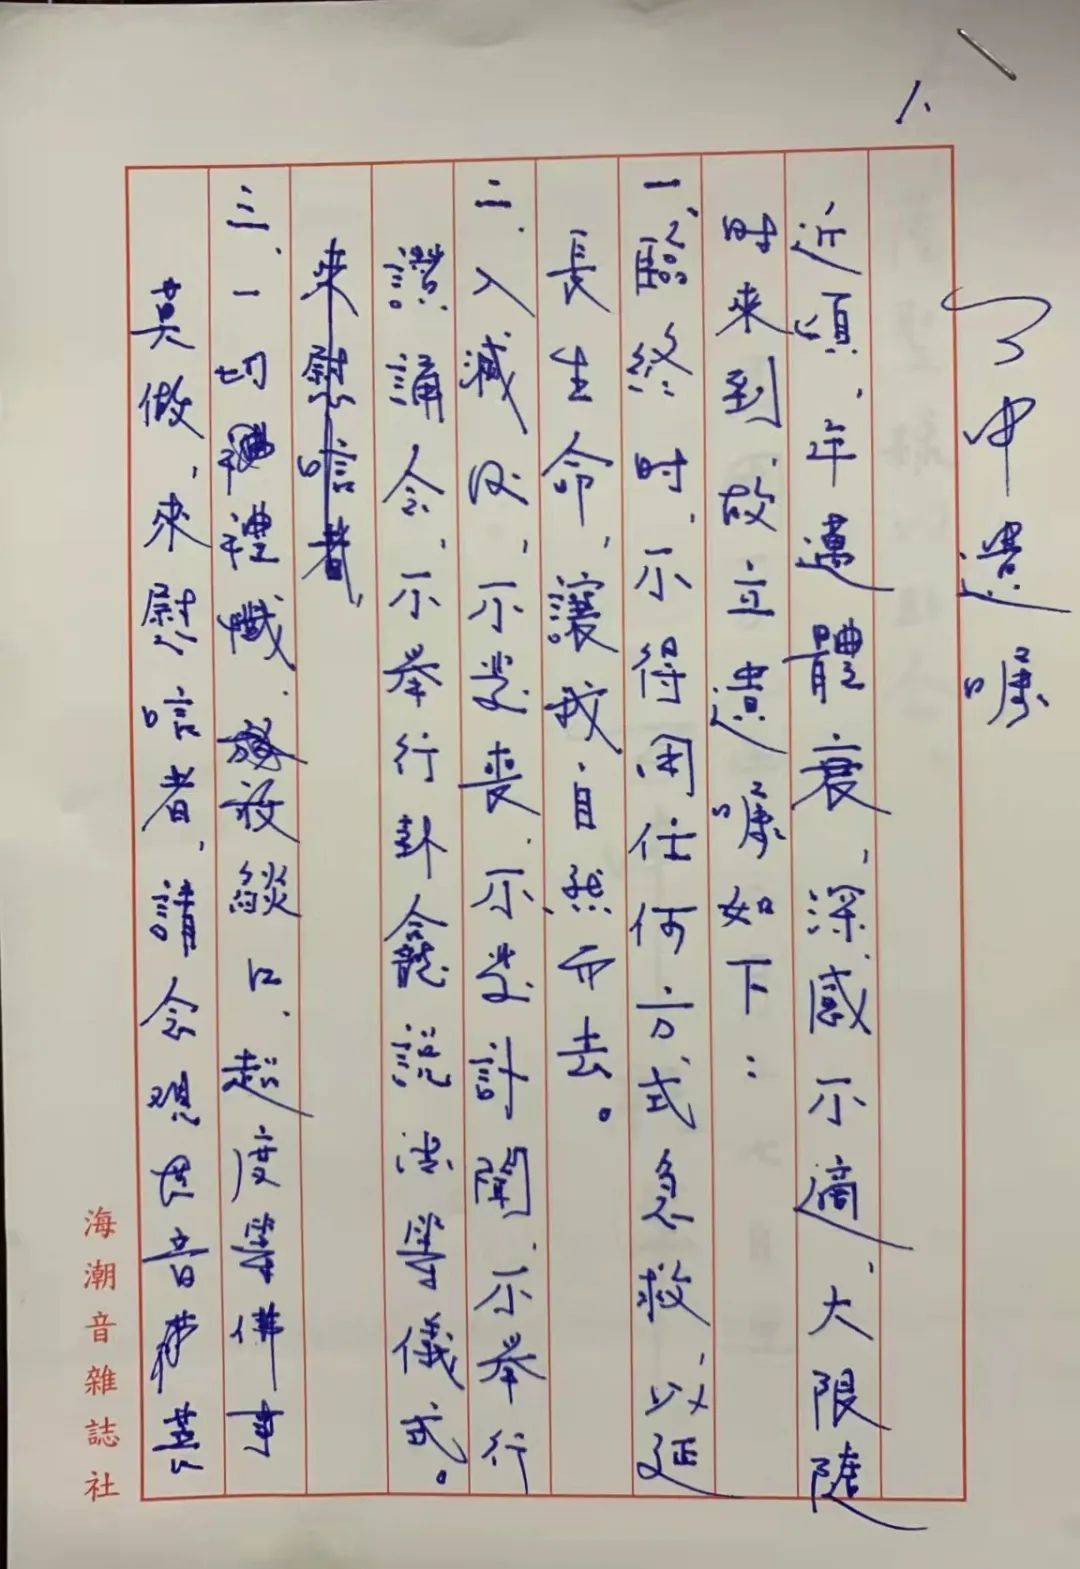 1、
了中遺囑
近頃、年邁體衰，深感不適、大限隨
时來到、故立遺囑如下：
一、臨終时、不得用任何方式急救、以延
長生命，讓我自然而去。
二、入滅后，不發喪、不發訃聞、不举行
讚誦念、不举行封龕說法等儀式。
來慰唁者，
三、一切禮懺、放燄口、超度等佛事
莫做，來慰唁者，請念观世音
海潮音雜誌社